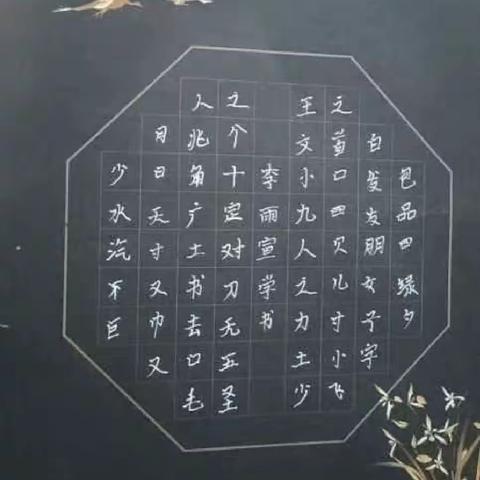 包品四绿夕
白发发朋女子字
之苗口四贝儿寸小飞
王文小九人之力土少
李雨宣学书
之个十定对刀无五圣
人兆角广土书去口毛
月日天寸又巾又
少水汽不巨